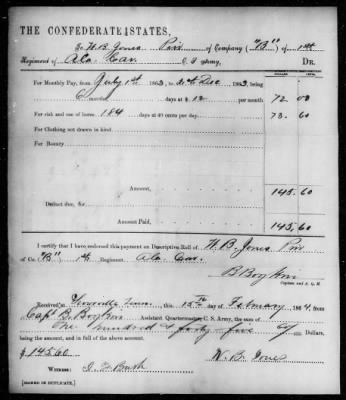 THE CONFEDERATE STATES,
To W. B. Jones Priv of Company ("B") of 1st
Regiment of Ala Cav. C. S. Army, DR.
DOLLARS. CENTS.
For Monthly Pay, from July 1st 1863, to Dec 1863, being
6 months days at $ 12 per month 72 00
For risk and use of horse 184 days at 40 cents per day, 73.60
For Clothing not drawn in kind
For Bounty
Amount, 145.60
Deduct due, for
Amount Paid, 145.60
I certify that I have endorsed this payment on Descriptive Roll of W. B. Jones Priv
of Co. ("B") 1st Regiment, Ala Cav.
Captain and A. Q. M.
Received at Tenn. this 15th day of February 1864, from
Capt B. Assistant Quartermaster C. S. Army, the sum of
One hundred & forty - five 60/ Dollars,
being the amount, and in full of the above account.
$ 145.60 W. B. Jones
WITNESS: Bush
[SIGNED IN DUPLICATE.]